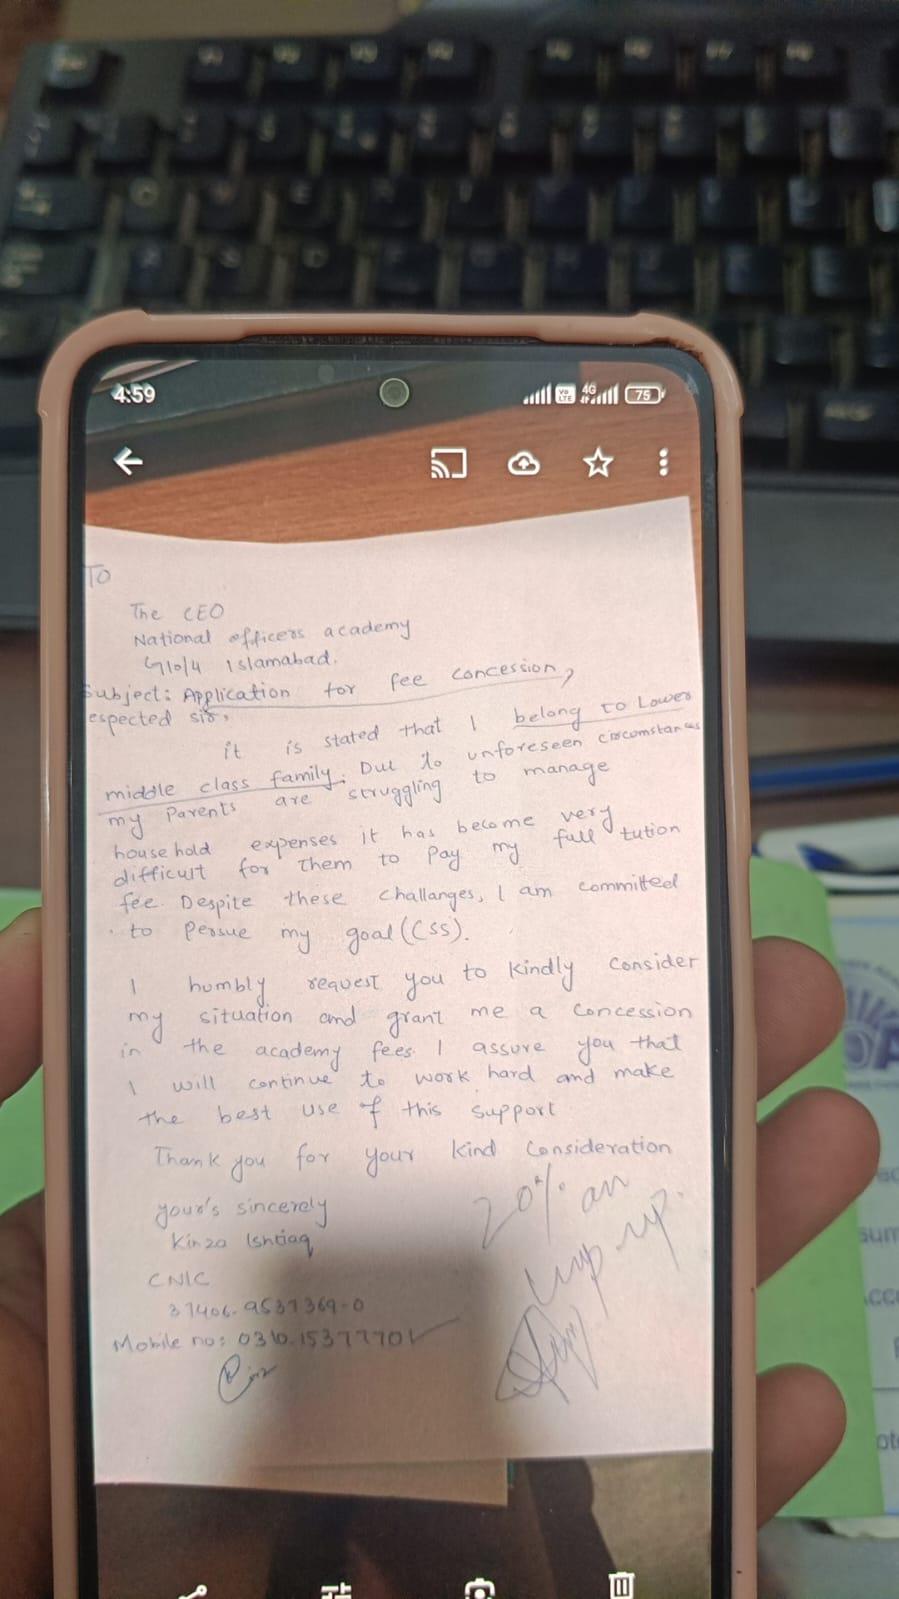 4:59
4G
75
To
The CEO
National officers academy
G10/4 Islamabad.
Subject: Application for fee concession,
espected sir,
it is stated that I belong to Lower
middle class family. Due to unforeseen circumstances
my Parents are struggling to manage
house hold expenses it has become very
difficult for them to Pay my full tution
fee. Despite these challanges, I am committed
to Persue my goal (CSS).
I humbly request you to kindly consider
my situation and grant me a concession
in the academy fees. I assure you that
I will continue to work hard and make
the best use of this support
Thank you for your kind consideration
your's sincerely
Kinza Ishtiaq
CNIC
Mobile no: 0310.15377701
20% on